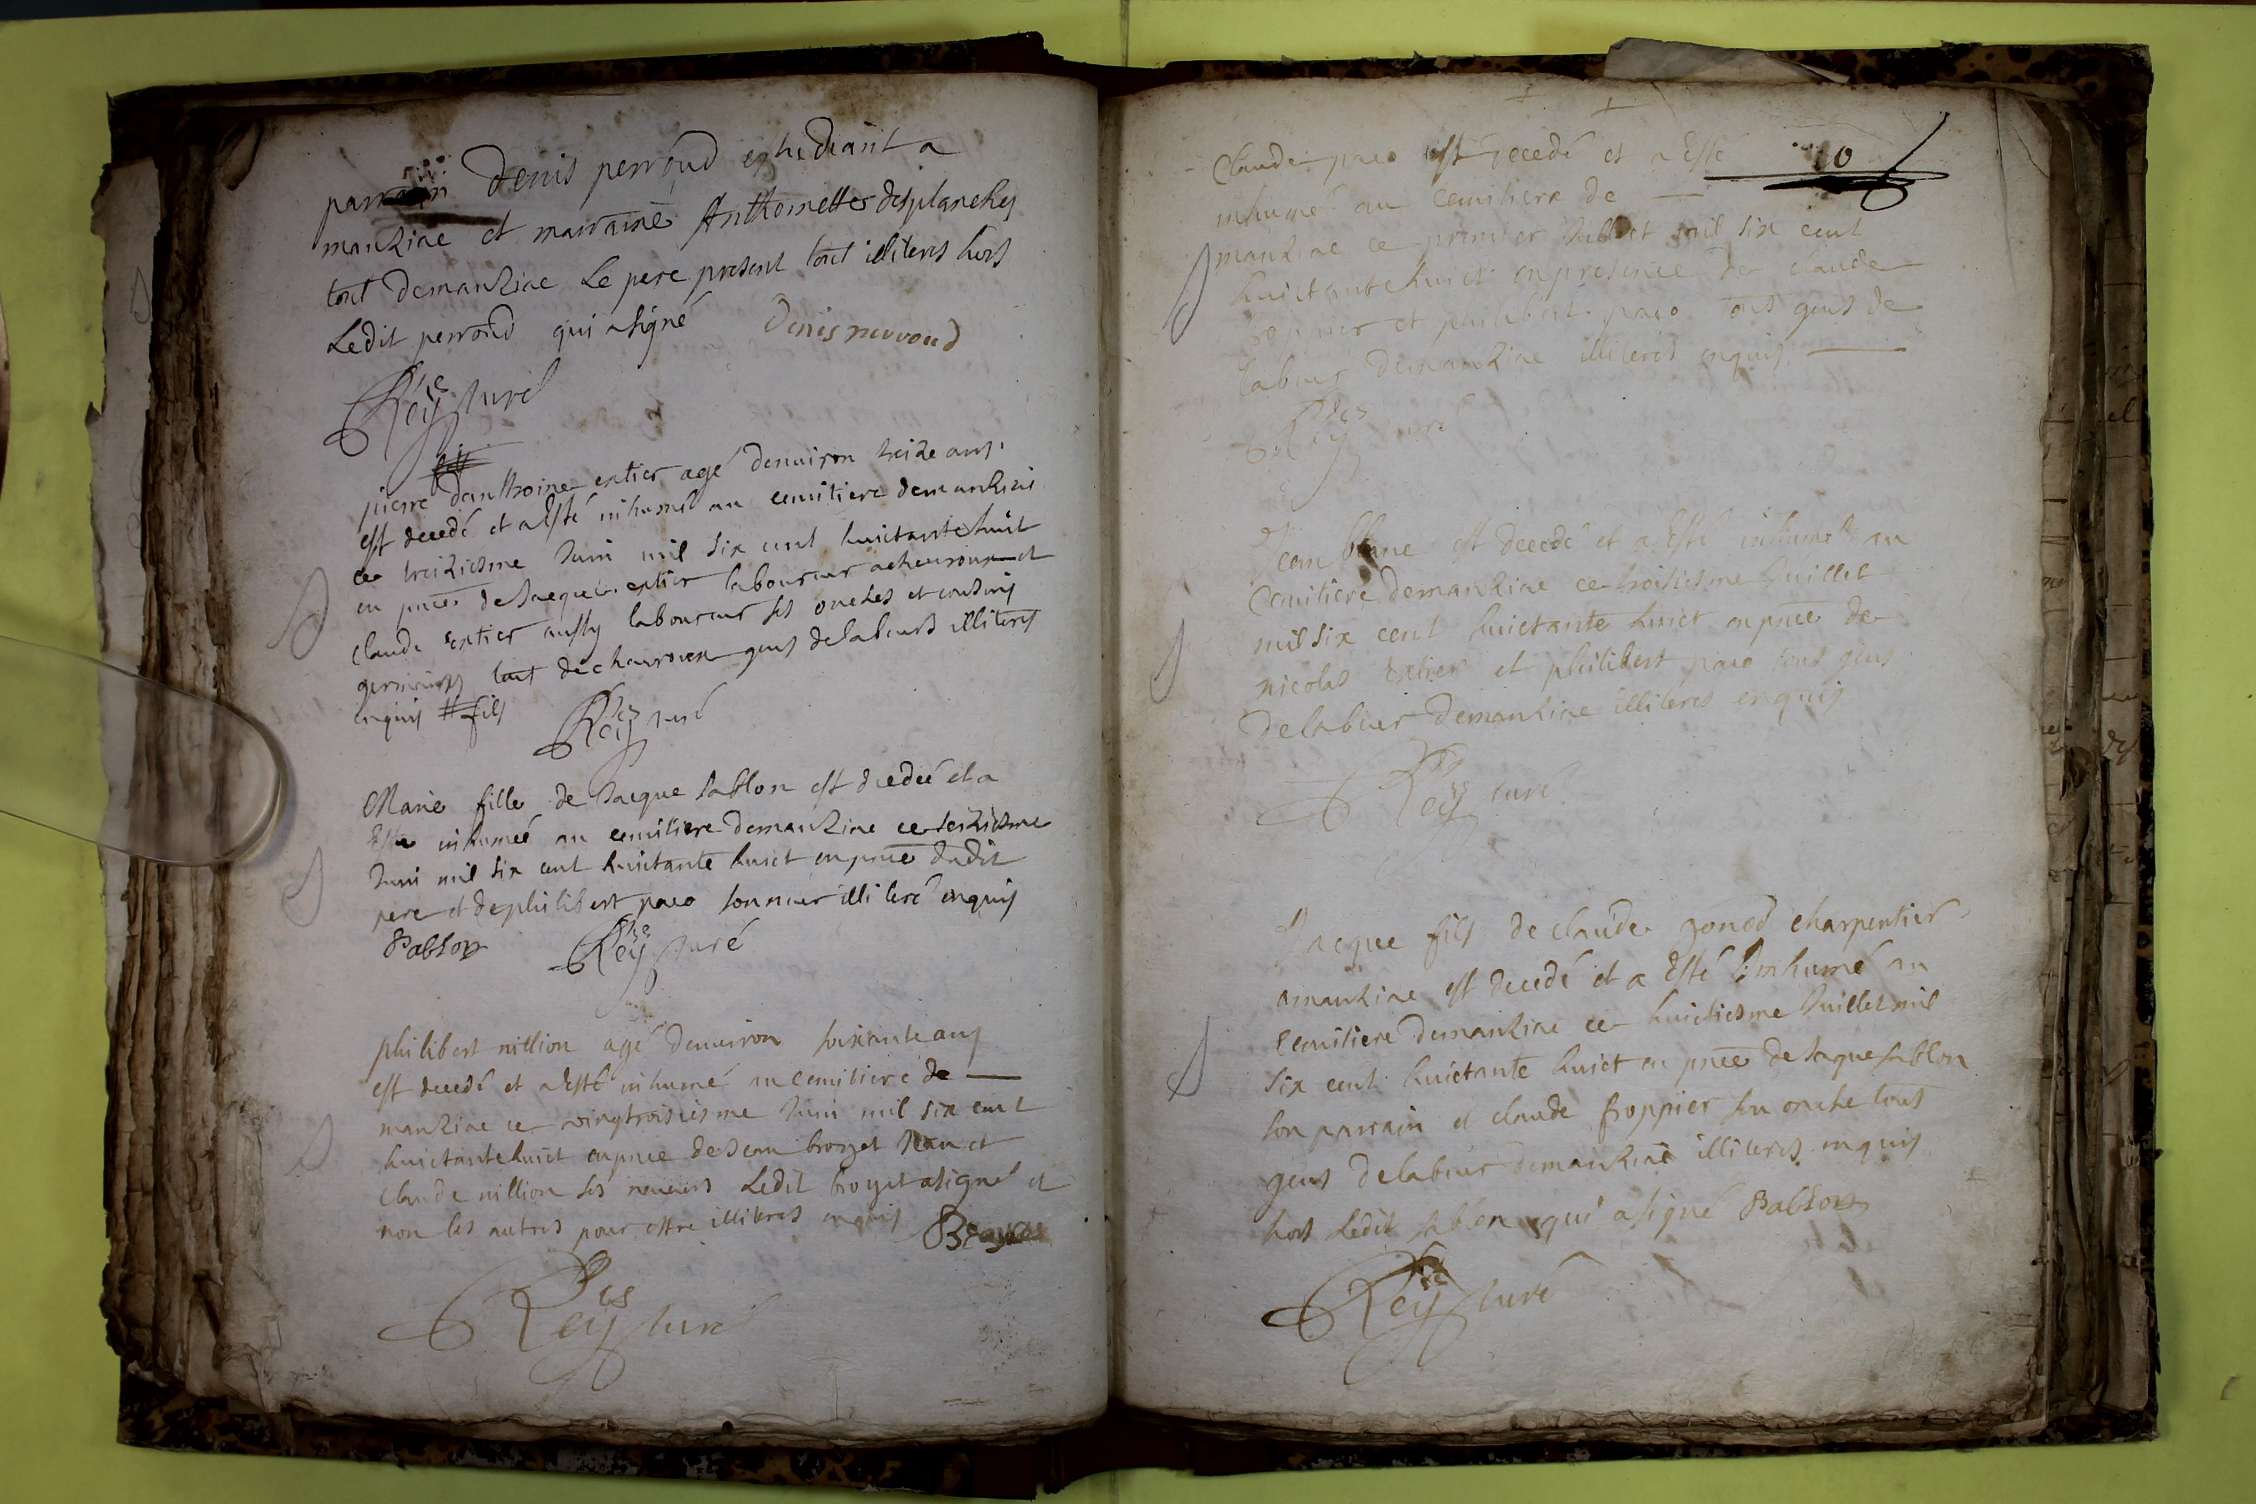 parrain Denis perroud esthudiant a
manziac et marraine Anthoinette desplanches
tout demanziac Le pere present tout illiteres hors
Ledit perroud qui a signé Denis perroud
Rey Curé
pierre # danthoine extier agé denuiron treize ans
est decedé et a Esté inhumé au cemitiere demanziac
ce treiziesme Juin mil six cent huictante huict
en pnce de Jacque extier laboureur a chauroux et
claude extier aussy laboureur ses oncles et cousins
germains tout de chauroux gens de labeurs illiteres
enquis # fils
Rey Curé
Marie fille de Jacque sablon est decedée et a
Esté inhumée au cemitiere demanziac ce seiziesme
Juin mil six cent huictante huict en pnce dudit
pere et de philibert paco sonneur illiteré enquis
Rey Curé
philibert nillion agé denuiron soixante ans
est decedé et a Esté inhumé au cemitiere de
manziac ce vingtroisiesme Juin mil six cent
huictante huict en pnce de Jean broyet Jean et
claude nillion ses neueus Ledit broyet a signé et
non les autres pour estre illiteres enquis Broyet
Rey Curé
10
Claude paco est decedé et a Esté
inhumé au cemitiere de
manziac ce premier Juillet mil six cent
huictante huict en presence de claude
et philibert paco tous gens de
labeur demanziac illiteres enquis
Rey Curé
Jean blanc est decedé et a Esté inhumé au
Cemitiere demanziac ce troisiesme Juillet
mil six cent huictante huict en pnce de
nicolas extier et philibert paco tous gens
de labeur demanziac illiteres enquis
Rey Curé
Jacque fils de claude charpentier
a manziac est decedé et a Esté inhumé au
cemitiere demanziac ce huictiesme Juillet mil
six cent huictante huict en pnce de Jaque sablon
son parrain et claude froppier son oncle tous
gens de labeur demanziac illiteres enquis
hors Ledit sablon qui a signé
Rey Curé